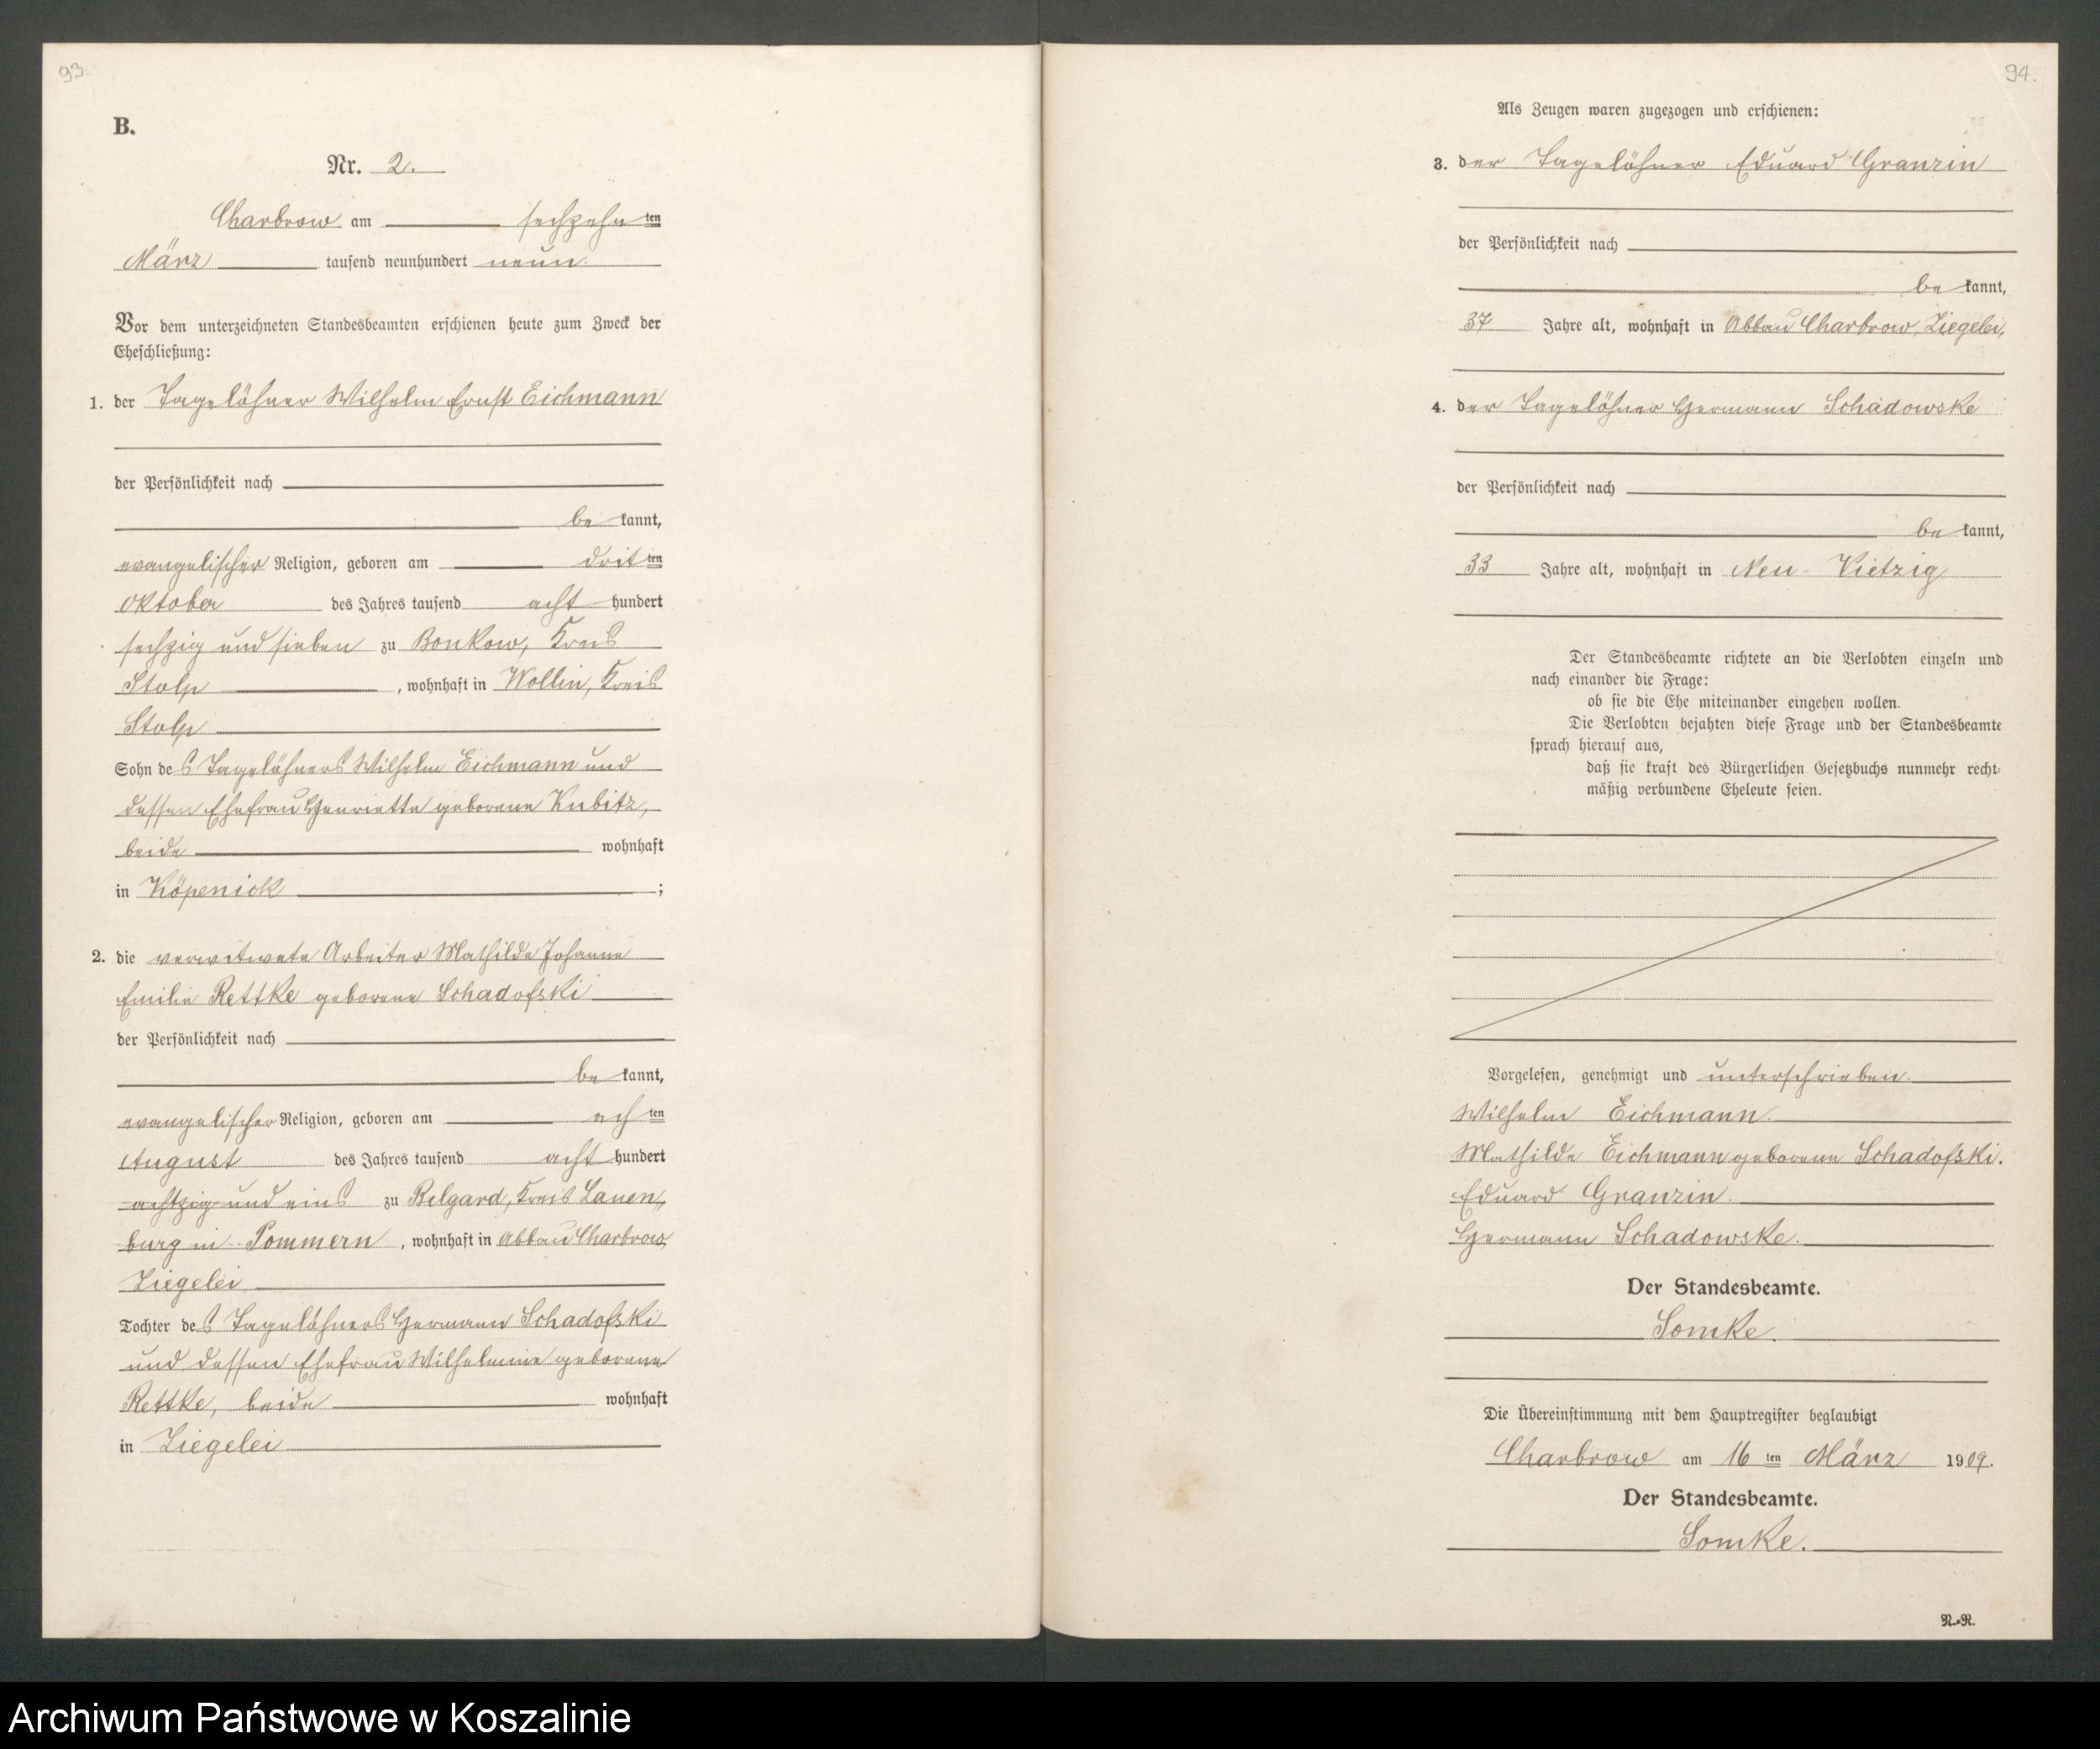 93.
B.
Nr. 2.
Charbrow am sechzehnten
März tausend neunhundert neun.
Vor dem unterzeichneten Standesbeamten erschienen heute zum Zweck der
Eheschließung:
1. der Tagelöhner Wilhelm Ernst Eichmann
der Persönlichkeit nach
be kannt,
evangelischer Religion, geboren am dritten
Oktober des Jahres tausend acht hundert
sechzig und sieben zu Bonkow, Kreis
Stolp, wohnhaft in Wollin, Kreis
Stolp
Sohn des Tagelöhners Wilhelm Eichmann und
dessen Ehefrau Henriette geborene Kubitz,
beide wohnhaft
in Köpenick;
2. die verwitwete Arbeiter Mathilde Johanne
Emilie Rettke geborene Schadofski
der Persönlichkeit nach
be kannt,
evangelischer Religion, geboren am achten
August des Jahres tausend acht hundert
achtzig und eins zu Belgard, Kreis Lauen-
burg in Pommern, wohnhaft in Abbau Charbrow,
Ziegelei
Tochter des Tagelöhners Hermann Schadofski
und dessen Ehefrau Wilhelmine geborene
Rettke, beide wohnhaft
in Ziegelei
94.
Als Zeugen waren zugezogen und erschienen:
3. der Tagelöhner Eduard Granzin
der Persönlichkeit nach
be kannt,
37 Jahre alt, wohnhaft in Abbau Charbrow, Ziegelei,
4. der Tagelöhner Hermann Schadowske
der Persönlichkeit nach
be kannt,
33 Jahre alt, wohnhaft in Neu-Vietzig
Der Standesbeamte richtete an die Verlobten einzeln und
nach einander die Frage:
ob sie die Ehe miteinander eingehen wollen.
Die Verlobten bejahten diese Frage und der Standesbeamte
sprach hierauf aus,
daß sie kraft des Bürgerlichen Gesetzbuchs nunmehr recht-
mäßig verbundene Eheleute seien.
Vorgelesen, genehmigt und unterschrieben.
Wilhelm Eichmann.
Mathilde Eichmann geborene Schadofski.
Eduard Granzin.
Hermann Schadowske.
Der Standesbeamte.
Somke.
Die Übereinstimmung mit dem Hauptregister beglaubigt
Charbrow am 16 ten März 1909.
Der Standesbeamte.
Somke.
N.-R.
Archiwum Państwowe w Koszalinie